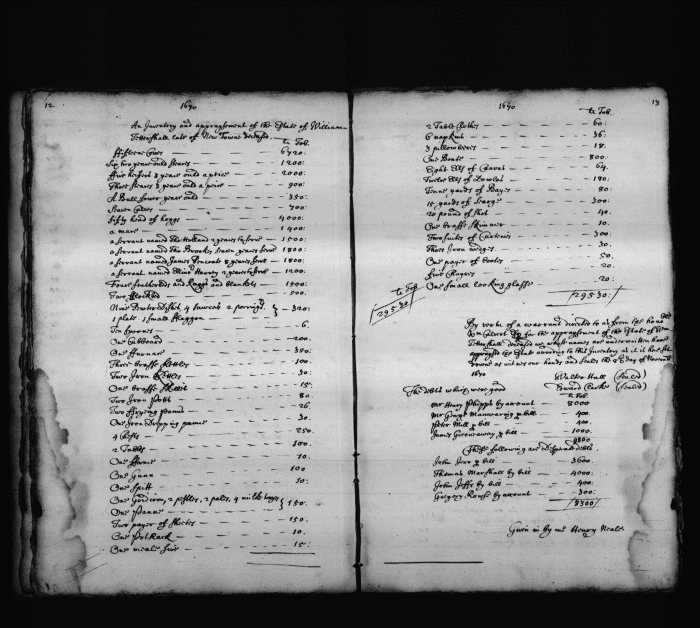 12
1670
An Inventory and appraysement of the Estate of William
Tettershall late of New Towne deceased
lb Tob
ffifteene Cowes 6720
Six two yeare ould steares 1200
ffive heifers 3 yeare ould a price 2000
Three steares 3 yeares ould a price 900
A Bull fower yeares ould 350
Seaven Calves 700
fifty head of hoggs 4000
a mare 1400
a servant named Tho Holland 2 yeares to serve 1500
a servant named Tho Brookes seaven yeares serve 1800
a servant named James 8 yeares serve 1800
a servant named Harvey 2 yeares to serve 1200
Foure featherbeds and Ruggs and blankets 1500
Two 500
Nine Pewter Dishes 4 sawcers 2 porringers
1 plate 1 small fflaggon 320
Ten spoones 6
One Cubboard 200
One 350
Three brasse Kettles 100
Two Iron Kettles 30
One brasse Skillet 15
Two Iron Potts 80
Two ffrying panns 26
One Iron Dripping panne 30
4 250
2 Tables 100
One 10
One Gunn 100
One Spitt 10
One Gridiron, 2 pestles, 2 4 milke trays
One Panne 150
Two payer of sheetes 150
One Potrack 10
One meale sive 15
13
1670
lb Tob
2 Table Clothes 60
6 napkins 36
3 pillowbeers 18
One Boate 800
Eight Ells of Canvas 64
Twelve Ells of Dowlas 180
Tenne yards of Bayes 80
15 yards of Searge 300
20 pound of shot 40
One brasse skimmer 10
Two suites of Curtaines 300
Three Iron wedges 30
One payer of bootes 50
five 20
One small looking glasse 20
lb Tob
29530
29530
By vertue of a warrant directed to us from the hon
Wm Calvert Esq for the appraysement of the Estate of Wm
Tettershall deceased we whose names are underwritten have
appraysed the Estate according to this Inventory as it is here
downe as witnes our hands and seales the 2 day of
1670
Walter Hall (Seale)
Clarke (Seale)
The debts which were good
lb Tob
Mr Henry Phipps by account 8000
Mr George Manwaring p bill 400
Peter Mill p bill 400
James Greeneway p bill 1000
9800
These following are desperate debts
John p bill 3600
Thomas Marshall by bill 4000
John Joffs by bill 400
Gregory Rowse by account 300
8300
Given in by me Henry Neale